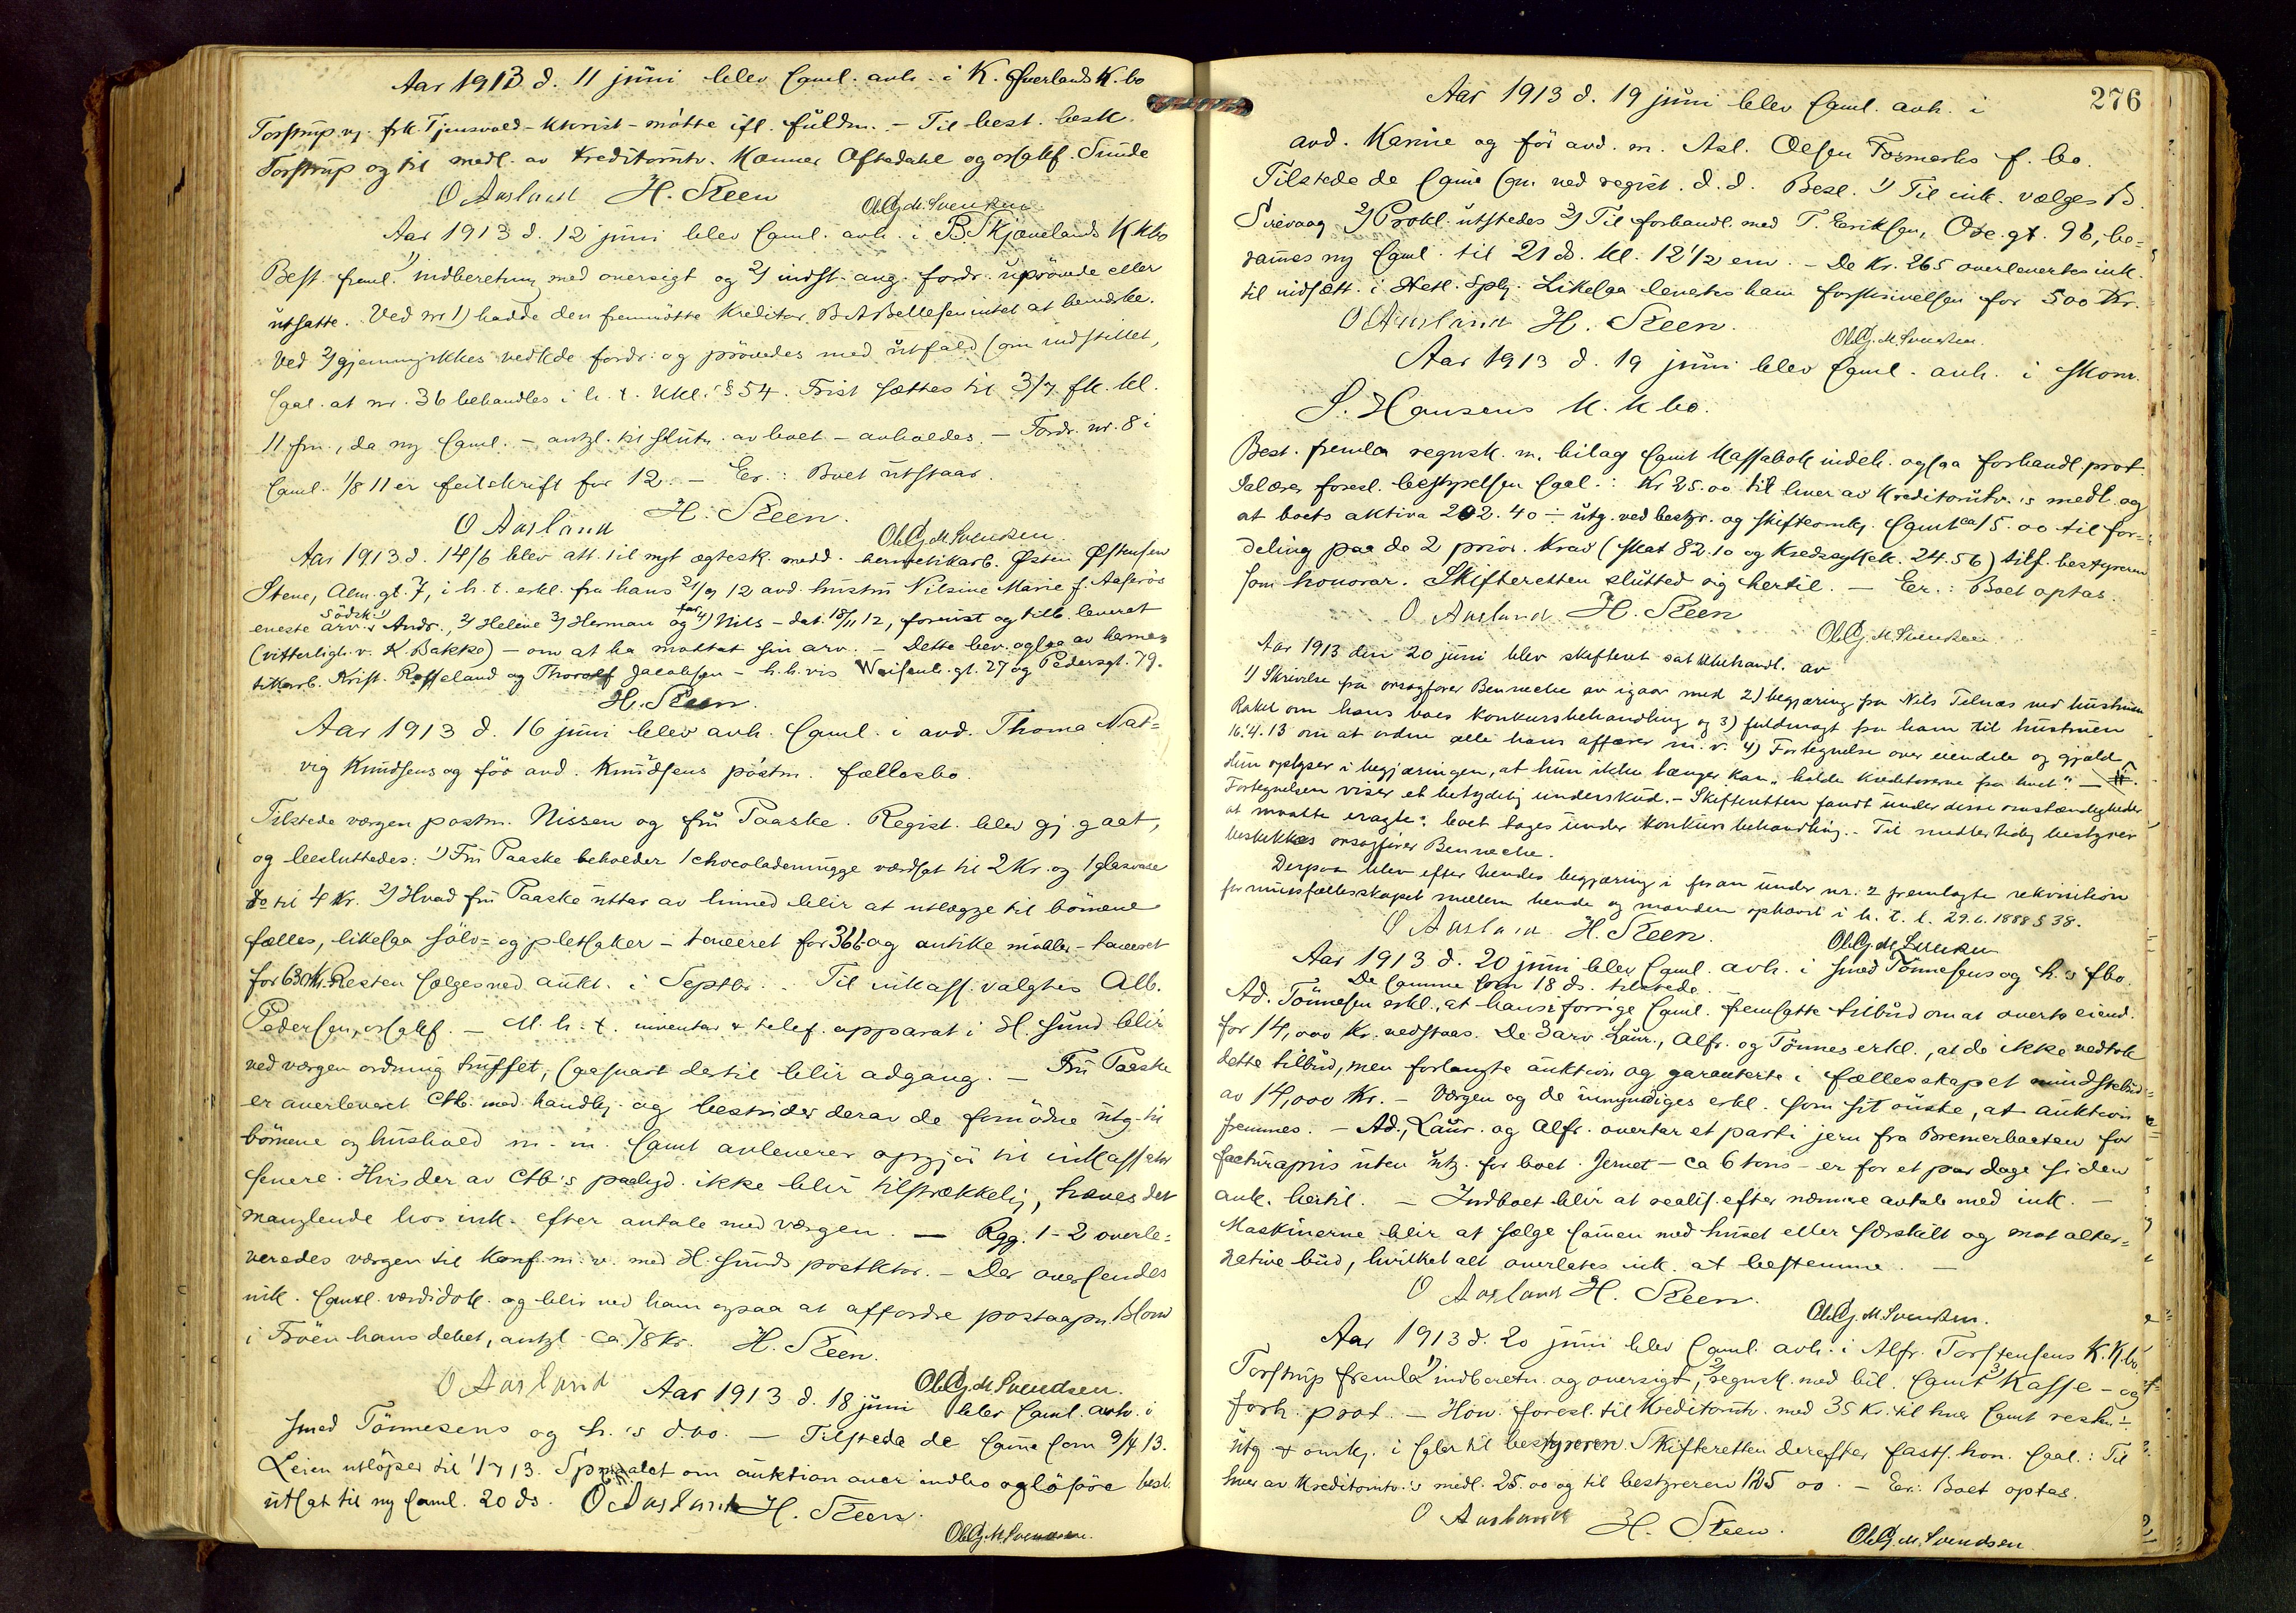 Aar 1913 d. 11 juni blev saml. avh. i K. Øverlands K.bo
Torstrup vj. frk. Tjensvold - ktorist - møtte ifl. fuldm. - Til best. besk.
Torstrup og til medl. av Kreditorutv. Kanner Oftedahl og orsakf. Sunde
O Ausland H. Steen Ole G. M. Svendsen
Aar 1913 d. 12 juni blev saml. avh. i B. Skjævelands K kbo
Best. freml. 1) indberetning med oversigt og 2) indst. ang. fordr. uprøvede eller
utsatte. Ved nr 1) hadde den fremmøtte Kreditor B A Bellesen intet at bemerke.
Ved 2) gjennemgikkes vedkde fordr. og prøvedes med utfald som indstillet,
saal. at nr. 36 behandles i h. t. Kkl.'s § 54. Frist sættes til 3/7 fk. kl.
11 fm., da ny saml. - antgl. til slutn. av boet - avholdes. - Fordr. nr. 8 i
saml. 1/8 11 er feilskrift for 12. - Er.: Boet utstaar.
O Ausland H. Steen. Ole G. M. Svendsen.
Aar 1913 d. 14/6 blev att. til nyt ægtesk. medd. hermetikarb. Østen Østensen
Stene, Alm. gt. 7, i h. t. erkl. fra hans 21/9 12 avd. hustru Nilsine Marie f. Aasprös
eneste arv.s södsk. 1) Andr., 2) Helene 3) Herman og 4) Nils - dat. 18/11 12, forevist og tilb. leveret
(vitterligh. v. K. Bakke) - om at ha mottat sin arv. - Dette bev. ogsaa av herme-
tikarb. Krist. Rosseland og Thorolf Jacobsen - h.h.vis Waisenh. gt. 27 og Pedersgt. 79.
H. Steen.
Aar 1913 d. 16 juni blev avh. saml. i avd. Thoma Nat-
vig Knudsens og för avd. Knudsens postm. fællesbo.
Tilstede værgen postm. Nissen og fru Paaske. Regist. blev gj.gaat,
og besluttedes: 1) Fru Paaske beholder 1 chocolademugge værdsat til 2 Kr. og 1 glasvase
do til 4 Kr. 2) Hvad fru Paaske uttar av linned blir at utlægge til börnene
fælles, likesaa sölv- og pletsaker - taxeret for 366 - og antike möbler - taxeret
for 630 Kr. Resten sælges ved aukt. i Septbr. - Til inkass. valgtes Alb.
Pedersen, orsakf. - M. h. t. inventar & telef. apparat i H. sund blir
ved værgen ordning truffet, saasnart dertil blir adgang. - Fru Paaske
er overleveret Ctb. med handlg. og bestrider derav de fornödne utg. til
börnene og hushold m. m. samt avleverer opgjör til inkassator
senere. Hvis der av Ctb.'s paalyd. ikke blir tilstrækkelig, hæves det
manglende hos ink. efter avtale med værgen. - Rgg. 1-2 overle-
veredes værgen til Konf. m. v. med H. sunds postktor. - Der oversendes
ink. samtl. værdidok. og blir ved ham ogsaa at affordre postaapn. Blom
i Tröen hans debet, antgl. ca 78 Kr. H. Steen.
O Ausland Ole G. M. Svendsen.
Aar 1913 d. 18 juni blev saml. avh. i
smed Tönnesens og h.'s d.bo. - Tilstede de samme som 9/4 13.
Leien utlöper til 1/7 13. Spm.aalet om auktion over indbo og lösöre besl.
utsat til ny saml. 20 ds. O Ausland H. Steen.
Ole G. M. Svendsen.
276
Aar 1913 d. 19 juni blev saml. avh. i
avd. Karine og för avd. m. Asl. Olsen Tormarks f. bo.
Tilstede de samme som ved regist. d. d. Besl. 1) Til ink. vælges B.
Sirevaag 2) Prokl. utstedes 3) Til forhandl. med T. Eriksen, Ose. gt. 96, be-
rammes ny saml. til 21 ds. kl. 12 1/2 em. - De Kr. 265 overlevertes ink.
til indsætt. i Hetl. Spb. Likesaa levertes ham forskrivelsen for 500 Kr.
O Ausland H. Steen. Ole G. M. Svendsen.
Aar 1913 d. 19 juni blev saml. avh. i skom.
S. Hansens K. k bo.
Best. fremla regnsk. m. bilag samt Kassabok indeh. ogsaa forhandl.prot.
Salærer foresl. bestyrelsen saal.: Kr 25.00 til hver av Kreditorutv.'s medl. og
at boets aktiva 202.40 ÷ utg. ved bestyr. og skifteomkg. samt ca 15.00 til for-
deling paa de 2 prior. krav (skat 82.10 og Kredssykek. 24.56) tilf. bestyreren
som honorar. Skifteretten slutted sig hertil. - Er.: Boet optas.
O Ausland H. Steen Ole G. M. Svendsen
Aar 1913 den 20 juni blev skifteret sat til behandl. av
1) Skrivelse fra orsagförer Bennecke av igaar med 2) begjæring fra Nils Telnæs ved hustruen
Rakel om hans boes konkursbehandling og 3) fuldmagt fra ham til hustruen
16.4.13 om at ordne alle hans affærer m. v. 4) Fortegnelse over eiendele og gjæld.
Hun oplyser i begjæringen, at hun ikke længer kan „holde kreditorerne fra livet". -
Fortegnelsen viser et betydelig underskud. - Skifteretten fandt under disse omstændigheder
at maatte eragte: boet tages under konkursbehandling. - Til midlertidig bestyrer
beskikkes orsagförer Bennecke.
Derpaa blev efter hendes begjæring i foran under nr. 2 fremlagte rekvisition
formuesfællesskapet mellem hende og manden ophævet i h. t. l. 29.6.1888 § 38.
O Ausland H. Steen. Ole G. M. Svendsen
Aar 1913 d. 20 juni blev saml. avh. i smed Tönnesens og h.'s fbo.
De samme som 18 ds. tilstede.
Ad. Tönnesen erkl., at hans i forrige saml. fremsatte tilbud om at overta eiend.
for 14,000 Kr. vedstaas. De 3 arv. Laur., Alfr. og Tönnes erkl., at de ikke vedtok
dette tilbud, men forlangte auktion og garanterte i fællesskapet mindstebud
av 14,000 Kr. - Værgen og de umyndiges erkl. som sit önske, at auktion
fremmes. - Ad., Laur. og Alfr. overtar et parti jern fra Bremerbaaten for
facturapris uten utg. for boet. Jernet - ca 6 tons - er for et par dage siden
ank. hertil. - Indboet blir at realis. efter nærmere avtale med ink. -
Maskinerne blir at sælge sammen med huset eller særskilt og mot alter-
native bud, hvilket alt overlates ink. at bestemme. -
O Ausland H. Steen. Ole G. M. Svendsen.
Aar 1913 d. 20 juni blev saml. avh. i Alfr. Torstensens K.K.bo
Torstrup fremla 1) indberetn. og oversigt, 2) regnsk. med bil. samt 3) Kasse- og
forh. prot. - Hon. foresl. til Kreditorutv. med 35 Kr. til hver samt resten ÷
utg. & omkg. i salær til bestyreren. Skifteretten derefter fasts. hon. saal.: Til
hver av Kreditorutv.'s medl. 25.00 og til bestyreren 125 00. - Er: Boet optas.
O Ausland H. Steen. Ole G. M. Svendsen